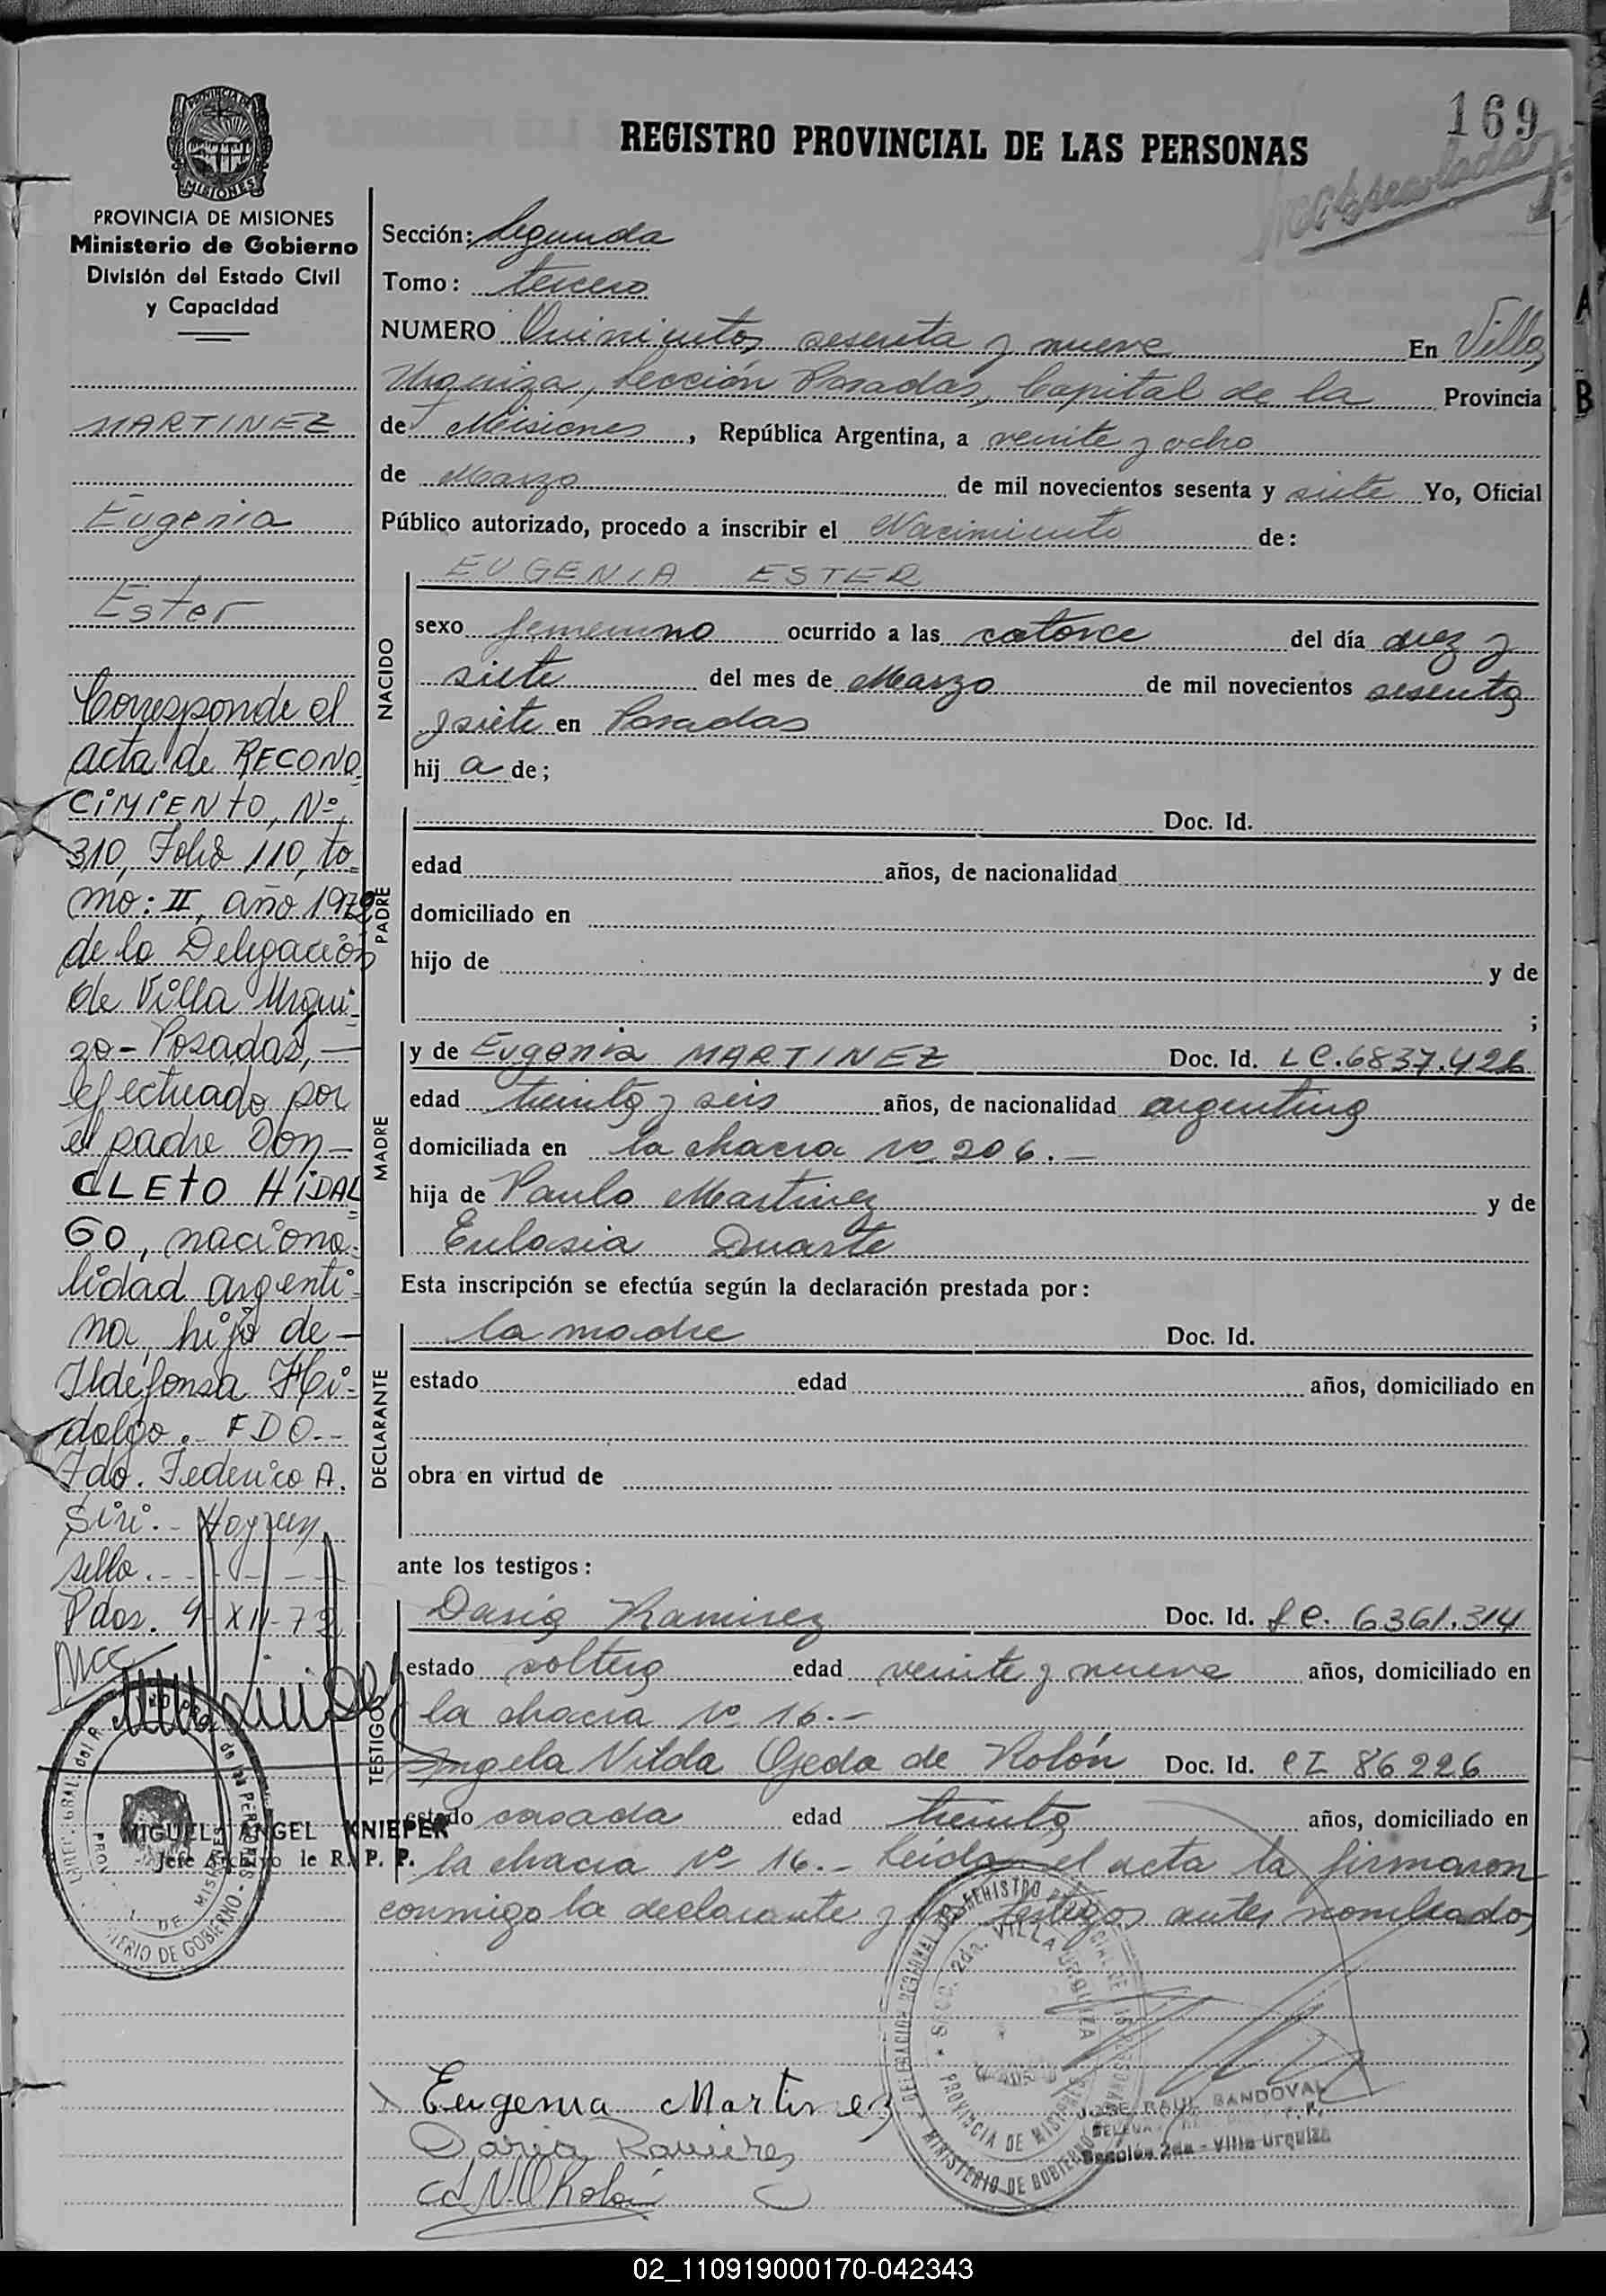 169
REGISTRO PROVINCIAL DE LAS PERSONAS
PROVINCIA DE
MISIONES
PROVINCIA DE MISIONES
Ministerio de Gobierno
División del Estado Civil
y Capacidad
MARTINEZ
Eugenia
Ester
Corresponde al
acta de RECONO
CIMIENTO, Nº
310, Folio 110, to=
mo: II, año 1972
de la Delegación
de Villa Urqui=
za - Posadas, —
efectuado por
el padre Don —
CLETO HIDAL
GO, naciona=
lidad argenti=
na, hijo de —
Ildefonsa Hi=
dalgo. FDO.--
Fdo. Federico A.
Siri. - Hay un
sello. - - - -
Pdas. 9-XII-72
MIGUEL ANGEL KNIEPER
Jefe Archivo de R. P. P.
Sección: Segunda
Tomo: tercero
NUMERO Quinientos sesenta y nueve En Villa
Urquiza, Sección Posadas, Capital de la Provincia
de Misiones, República Argentina, a veinte y ocho
de Marzo de mil novecientos sesenta y siete Yo, Oficial
Público autorizado, procedo a inscribir el Nacimiento de:
NACIDO
EUGENIA ESTER
sexo femenino ocurrido a las catorce del día diez y
siete del mes de Marzo de mil novecientos sesenta
y siete en Posadas
hij a de;
PADRE
Doc. Id.
edad años, de nacionalidad
domiciliado en
hijo de y de
;
MADRE
y de Eugenia MARTINEZ Doc. Id. LC.6837.426
edad treinta y seis años, de nacionalidad argentina
domiciliada en la chacra nº 206.-
hija de Paulo Martinez y de
Eulasia Duarte
Esta inscripción se efectúa según la declaración prestada por:
DECLARANTE
la madre Doc. Id.
estado edad años, domiciliado en
obra en virtud de
ante los testigos:
TESTIGOS
Daria Ramirez Doc. Id. LC. 6361.314
estado soltera edad veinte y nueve años, domiciliado en
la chacra nº 16.-
Angela Nilda Ojeda de Rolón Doc. Id. CI 86226
estado casada edad treinta años, domiciliado en
la chacra nº 16.- Leída el acta la firmaron
conmigo la declarante y los testigos antes nombrados
Eugenia Martinez
Daria Ramirez
JOSE RAUL SANDOVAL
Sección 2da - Villa Urquiza
A
B
02_110919000170-042343